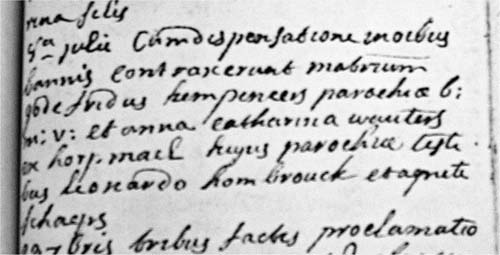 rina filis
5ta julii Cum dispensatione in oibus
bannis contraxerunt matrium
godefridus hempeneers parochiæ b:
m: v: et anna catharina wauters
ex horpmael hujus parochiæ testi
bus leonardo hombrouck et agnete
schaeps
bris tribus factis proclamatio